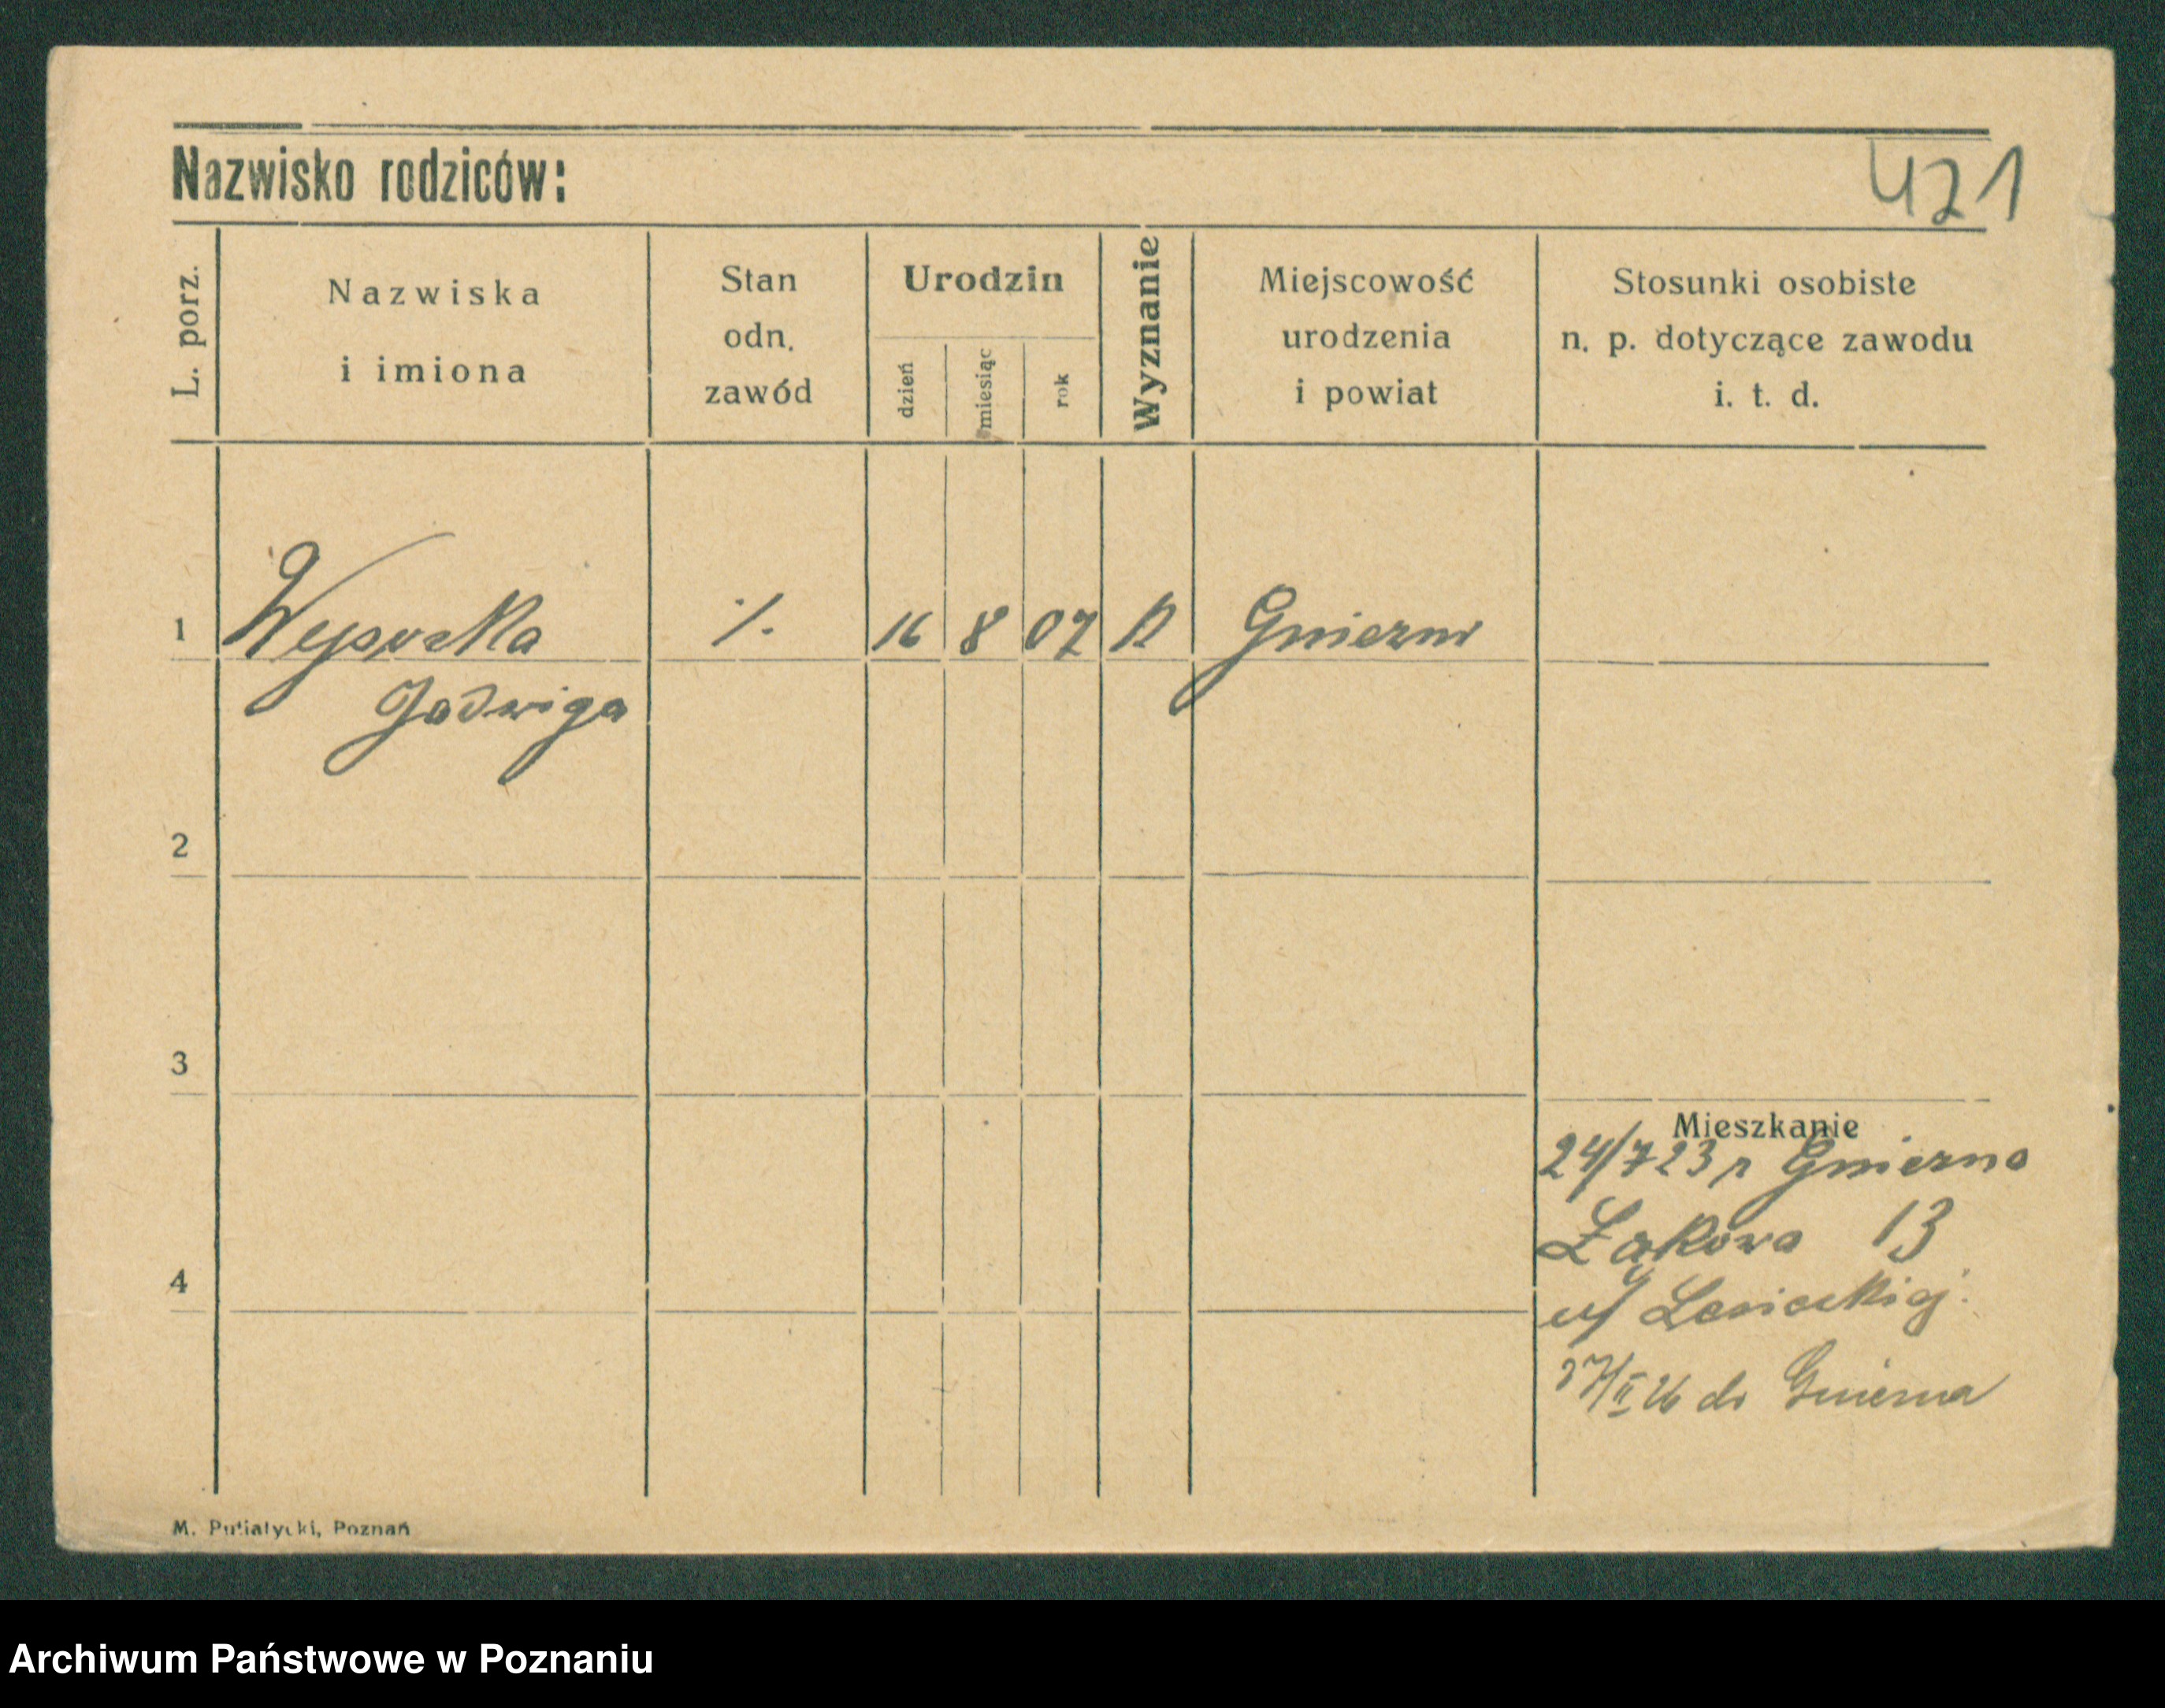 421
Nazwisko rodziców:
L. porz.
Nazwiska
i imiona
Stan
odn.
zawód
Urodzin
dzień
miesiąc
rok
Wyznanie
Miejscowość
urodzenia
i powiat
Stosunki osobiste
n. p. dotyczące zawodu
i. t. d.
1 Wysocka ./. 16 8 07 Gniezno
Jadwiga
2
3
Mieszkanie
24/7 23 Gniezno
Łąkowa 13
4
27/II 26 do Gniezna
M. Putiatycki, Poznań
Archiwum Państwowe w Poznaniu